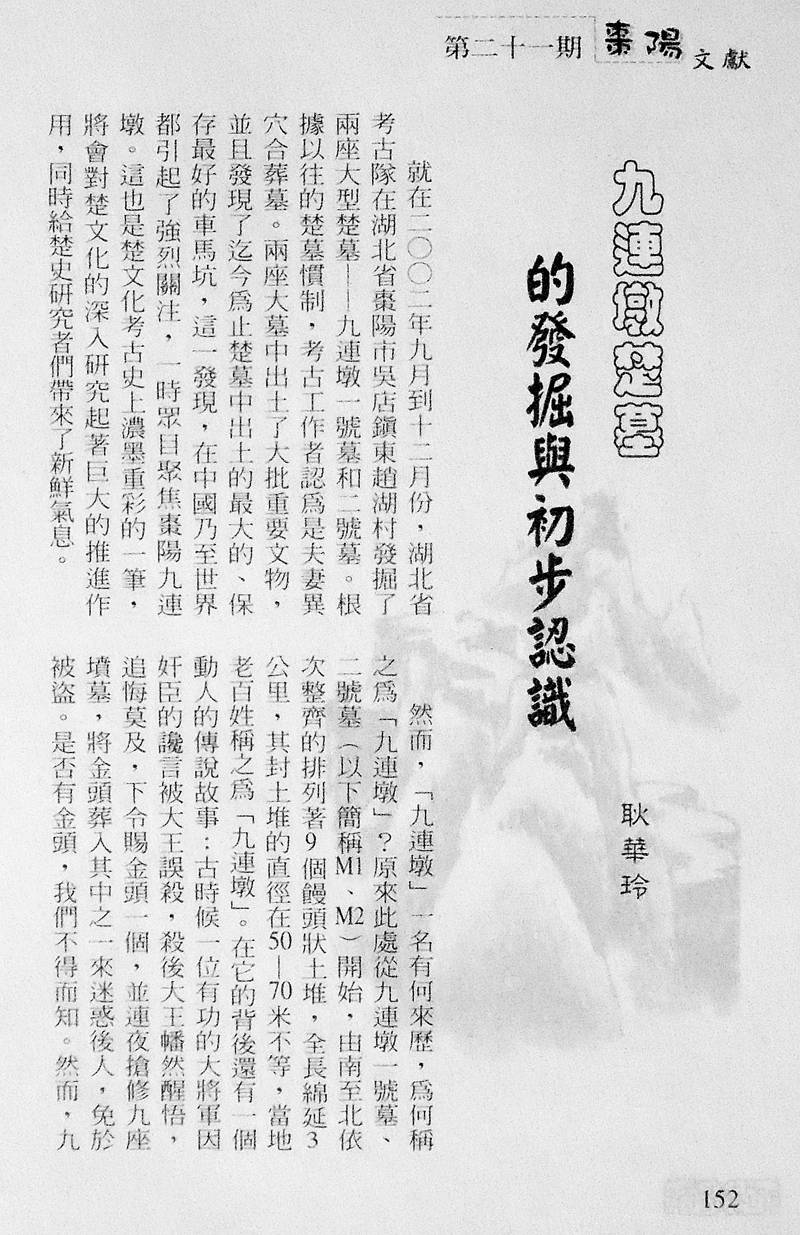 第二十一期 棗陽文獻
九連墩楚墓
的發掘與初步認識
耿華玲
就在二〇〇二年九月到十二月份，湖北省
考古隊在湖北省棗陽市吳店鎮東趙湖村發掘了
兩座大型楚墓——九連墩一號墓和二號墓。根
據以往的楚墓慣制，考古工作者認爲是夫妻異
穴合葬墓。兩座大墓中出土了大批重要文物，
並且發現了迄今爲止楚墓中出土的最大的、保
存最好的車馬坑，這一發現，在中國乃至世界
都引起了強烈關注，一時眾目聚焦棗陽九連
墩。這也是楚文化考古史上濃墨重彩的一筆，
將會對楚文化的深入研究起著巨大的推進作
用，同時給楚史研究者們帶來了新鮮氣息。
然而，「九連墩」一名有何來歷，爲何稱
之爲「九連墩」？原來此處從九連墩一號墓、
二號墓（以下簡稱M1、M2）開始，由南至北依
次整齊的排列著9個饅頭狀土堆，全長綿延3
公里，其封土堆的直徑在50—70米不等，當地
老百姓稱之爲「九連墩」。在它的背後還有一個
動人的傳說故事：古時候一位有功的大將軍因
奸臣的讒言被大王誤殺，殺後大王幡然醒悟，
追悔莫及，下令賜金頭一個，並連夜搶修九座
墳墓，將金頭葬入其中之一來迷惑後人，免於
被盜。是否有金頭，我們不得而知。然而，九
152